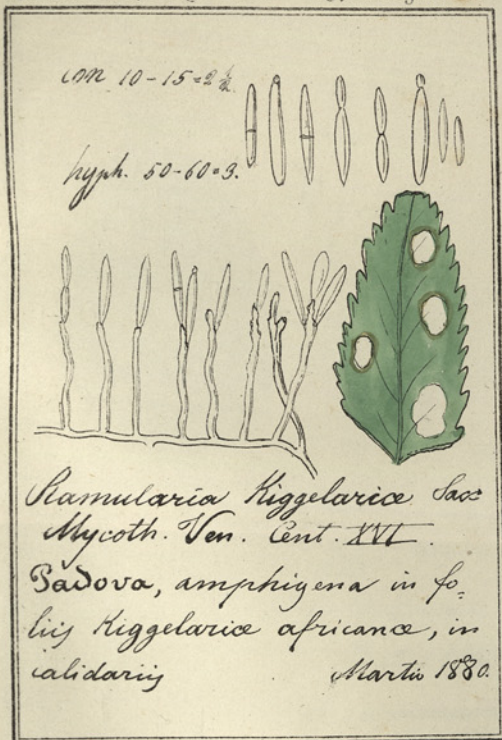 con 10-15=2 1/2
hyph. 50-60=3.
Ramularia Kiggelariæ Sacc
Mycoth. Ven. Cent. XVI.
Padova, amphigena in fo=
liis Kiggelariæ africanæ, in
calidariis Martio 1880.